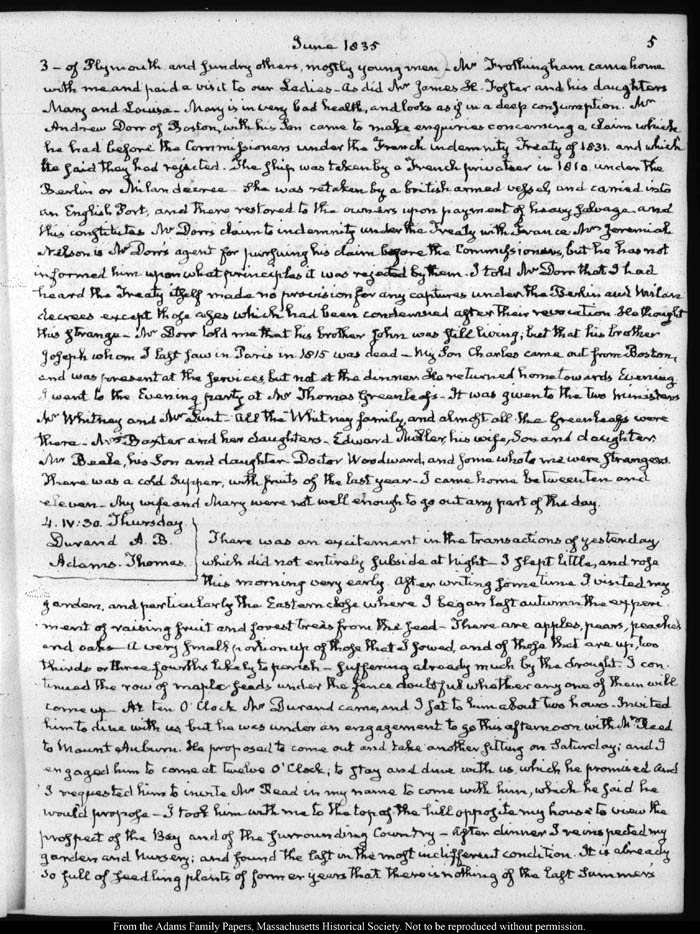 June 1835 5
3 - of Plymouth and sundry others, mostly young men - Mr Frothingham came home
with me and paid a visit to our Ladies - As did Mr James H. Foster and his daughters
Mary and Louisa - Mary is in very bad health, and looks as if in a deep consumption. Mr
Andrew Dorr of Boston, with his Son came to make enquiries concerning a claim which
he had before the Commissioners under the French indemnity Treaty of 1831. and which
he said they had rejected. The ship was taken by a French privateer in 1810. under the
Berlin or Milan decree - She was retaken by a british armed vessel, and carried into
an English Port, and there restored to the owners upon payment of heavy salvage. and
this constitutes Mr Dorr's claim to indemnity under the Treaty with France. Mr Jeremiah
Nelson is Mr Dorr's agent for pursuing his claim before the Commissioners, but he has not
informed him upon what principles it was rejected by them. I told Mr Dorr that I had
heard the Treaty itself made no provision for any captures under the Berlin and Milan
decrees except those cases which had been condemned after their revocation. He thought
this strange - Mr Dorr told me that his brother John was still living; but that his brother
Joseph whom I last saw in Paris in 1815 was dead - My Son Charles came out from Boston,
and was present at the services, but not at the dinner. He returned home towards Evening
I went to the Evening party at Mr Thomas Greenleaf's - It was given to the two Ministers
Mr Whitney and Mr Lunt - All the Whitney family, and almost all the Greenleafs were
there - Mrs Baxter and her daughters - Edward Miller, his wife, Son and daughter.
Mr Beale, his Son and daughter - Doctor Woodward, and some who to me were strangers.
There was a cold supper, with fruits of the last year - I came home between ten and
eleven - My wife and Mary were not well enough to go out any part of the day.
4. IV:30. Thursday.
Durand A. B.
Adams. Thomas.
There was an excitement in the transactions of yesterday
which did not entirely subside at Night - I slept little, and rose
this morning very early. After writing some time I visited my
garden, and particularly the Eastern close where I began last autumn the experi
ment of raising fruit and forest trees from the seed - There are apples, pears, peaches
and oaks - A very small portion up of those that I sowed, and of those that are up, two
thirds or three fourths likely to perish - suffering already much by the drought. I con
tinued the row of maple seeds under the fence doubtful whether any one of them will
come up - At ten O'Clock Mr Durand came, and I sat to him about two hours - Invited
him to dine with us, but he was under an engagement to go this afternoon with Mr Reed
to Mount Auburn. He proposed to come out and take another sitting on Saturday; and I
engaged him to come at twelve O'Clock; to stay and dine with us, which he promised and
I requested him to invite Mr Read in my name to come with him, which he said he
would propose - I took him with me to the top of the hill opposite my house to view the
prospect of the Bay and of the surrounding Country - After dinner I reinspected my
garden and Nursery; and found the last in the most indifferent condition. It is already
so full of seedling plants of former years that there is nothing of the last Summer's
From the Adams Family Papers, Massachusetts Historical Society. Not to be reproduced without permission.